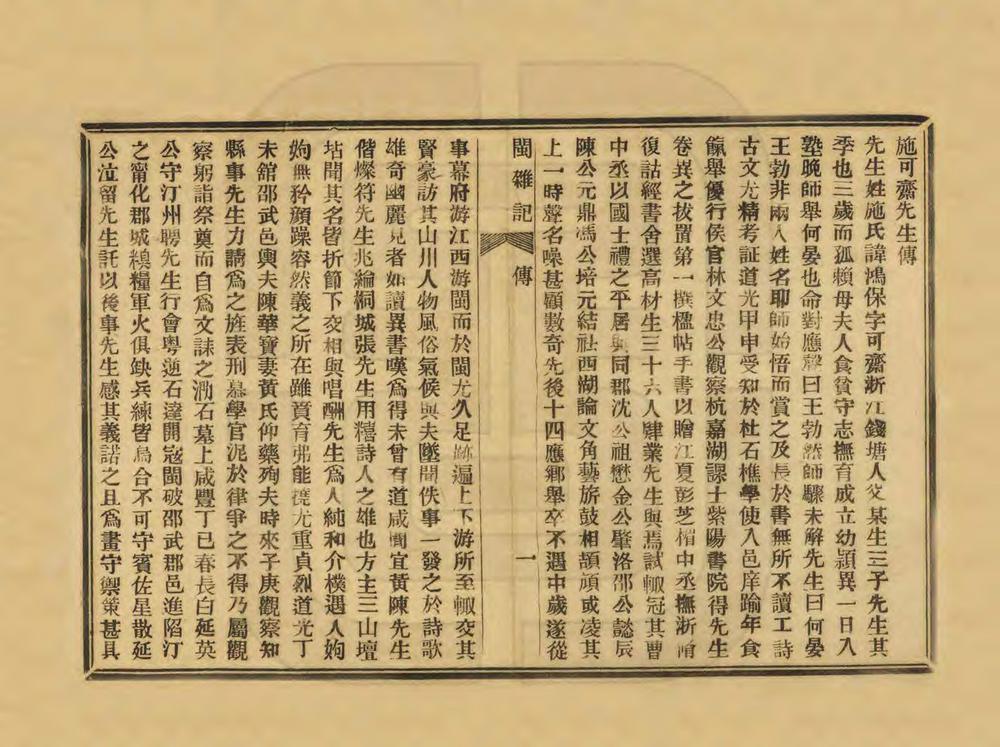 施可齋先生傳
先生姓施氏諱鴻保字可齋浙江錢塘人父某生三子先生其
季也三歲而孤賴母夫人食貧守志撫育成立幼頴異一日入
塾晚師舉何晏也命對應聲曰王勃然師驟未解先生曰何晏
王勃非兩人姓名耶師始悟而賞之及長於書無所不讀工詩
古文尤精考証道光甲申受知於杜石樵學使入邑庠踰年食
餼舉優行侯官林文忠公觀察杭嘉湖課士紫陽書院得先生
卷異之拔置第一撰楹帖手書以贈江夏彭芝楣中丞撫浙時
復詁經書舍選高材生三十六人肄業先生與焉試輙冠其曹
中丞以國士禮之平居與同郡沈公祖懋金公肇洛邵公懿辰
陳公元鼎馮公培元結社西湖論文角藝旂鼓相頡頏或凌其
上一時聲名噪甚顧數奇先後十四應鄉舉卒不遇中歲遂從
閩雜記 傳 一
事幕府游江西游閩而於閩尤久足跡遍上下游所至輙交其
賢豪訪其山川人物風俗氣候與夫墜聞佚事一發之於詩歌
雄奇幽麗見者如讀異書嘆爲得未曾有道咸間宜黃陳先生
偕燦符先生兆綸桐城張先生用糦詩人之雄也方主三山壇
坫聞其名皆折節下交相與唱酬先生爲人純和介樸遇人姁
姁無矜顏躁容然義之所在雖賁育弗能撓尤重貞烈道光丁
未舘邵武邑輿夫陳華寶妻黃氏仰藥殉夫時來子庚觀察知
縣事先生力請爲之旌表刑幕學官泥於律爭之不得乃屬觀
察躬詣祭奠而自爲文誄之泐石墓上咸豐丁巳春長白延英
公守汀州聘先生行會粵逆石達開寇閩破邵武郡邑進陷汀
之甯化郡城糗糧軍火俱缺兵練皆烏合不可守賓佐星散延
公泣留先生託以後事先生感其義諾之且爲畫守禦策甚具